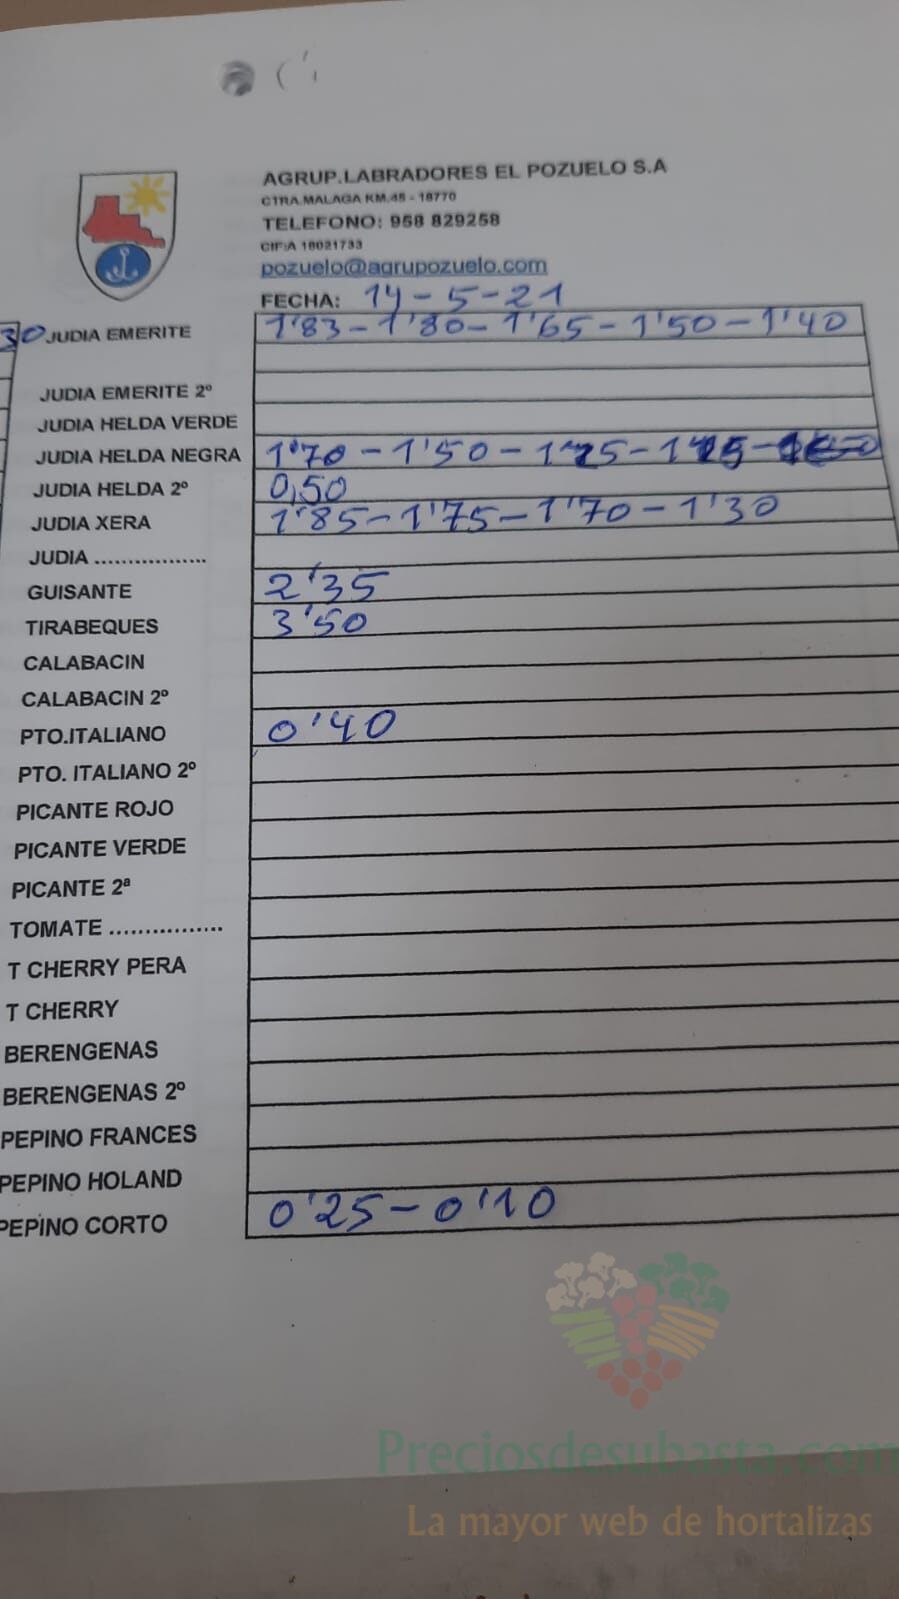 AGRUP.LABRADORES EL POZUELO S.A
CTRA.MALAGA KM.45 - 18770
TELEFONO: 958 829258
CIF:A 18021733
pozuelo@agrupozuelo.com
FECHA: 14-5-21
30 JUDIA EMERITE 1'83-1'80-1'65-1'50-1'40
JUDIA EMERITE 2º
JUDIA HELDA VERDE
JUDIA HELDA NEGRA 1'70-1'50-
JUDIA HELDA 2º 0,50
JUDIA XERA 1'85-1'75-1'70-1'30
JUDIA .................
GUISANTE 2'35
TIRABEQUES 3'50
CALABACIN
CALABACIN 2º
PTO.ITALIANO 0'40
PTO. ITALIANO 2º
PICANTE ROJO
PICANTE VERDE
PICANTE 2ª
TOMATE ................
T CHERRY PERA
T CHERRY
BERENGENAS
BERENGENAS 2º
PEPINO FRANCES
PEPINO HOLAND
PEPINO CORTO 0'25-0'10
Preciosdesubasta.com
La mayor web de hortalizas